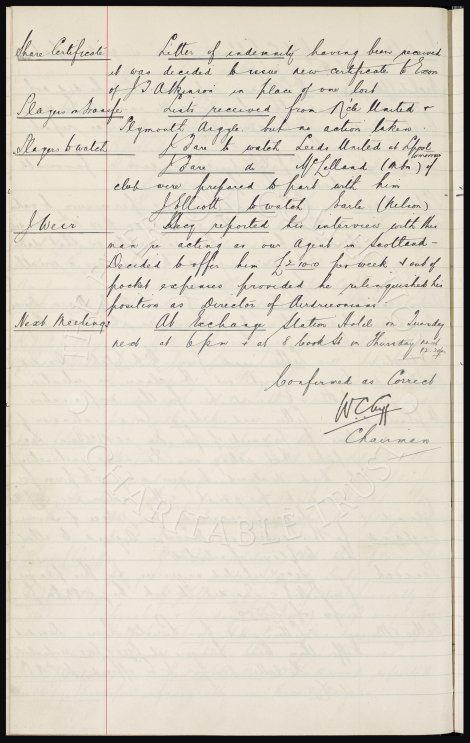 Share Certificate Letter of indemnity having been received
it was decided to issue new certificate to Exors
of J. T. Atkinson in place of one lost
Players on Transfer Lists received from N'cle United &
Plymouth Argyle but no action taken.
Players to watch J Bare to watch Leeds United at L'pool
J Bare do McLelland (M'bro) if tomorrow
club were prepared to part with him
J Elliott to watch Earle (Nelson)
J Weir Secy reported his interview with this
man re acting as our Agent in Scotland –
Decided to offer him £2-10-0 per week & out of
pocket expenses provided he relinquished his
position as Director of Airdrieonians
Next Meetings At Exchange Station Hotel on Tuesday
next at 6 pm & at 8 Cook St on Thursday next
12-30 p.
Confirmed as Correct
W.C. Cuff
Chairman
CHARITABLE TRUST